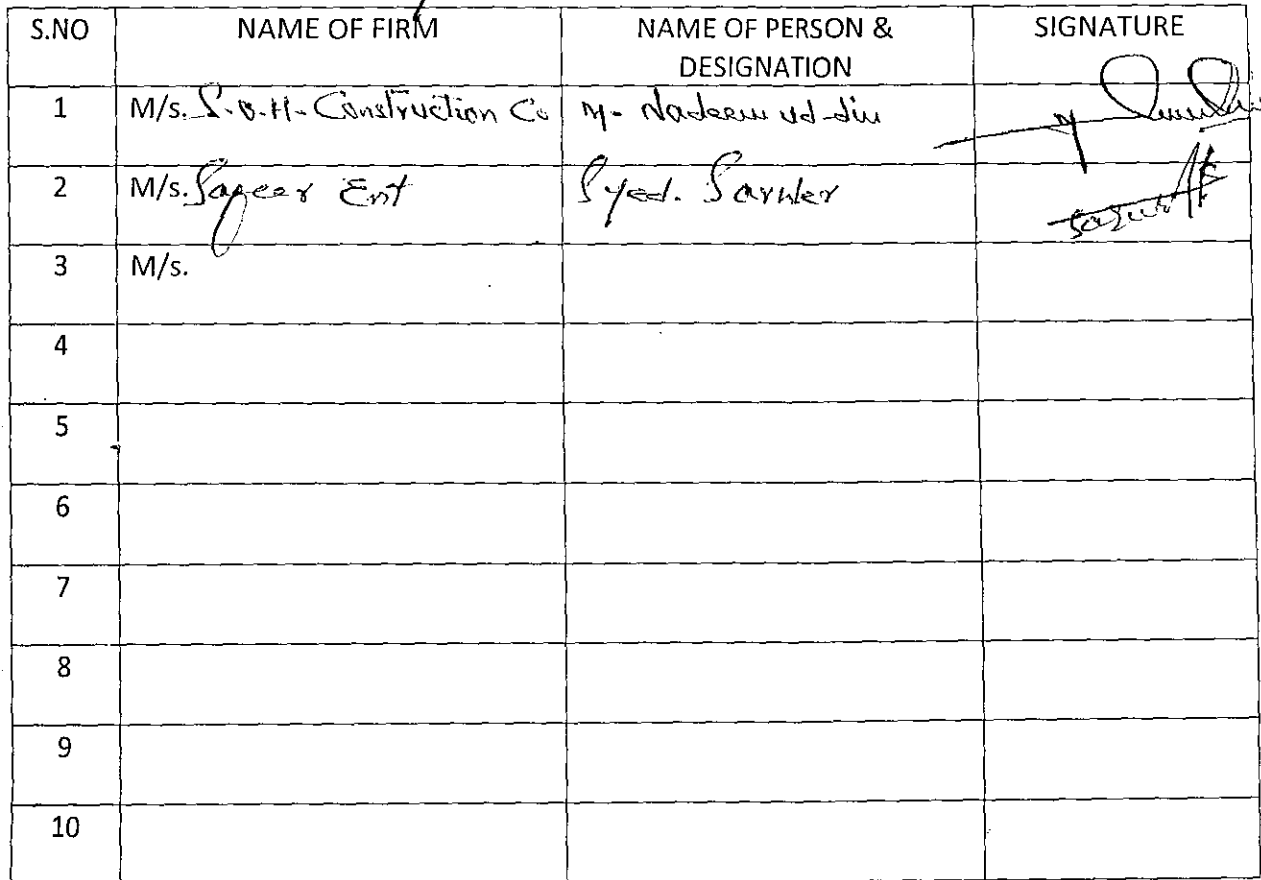 S.NO NAME OF FIRM NAME OF PERSON & SIGNATURE
DESIGNATION
1 M/s. S.O.H. Construction Co M. Nadeem ud-din
2 M/s. Sageer Ent Syed.
3 M/s.
4
5
6
7
8
9
10